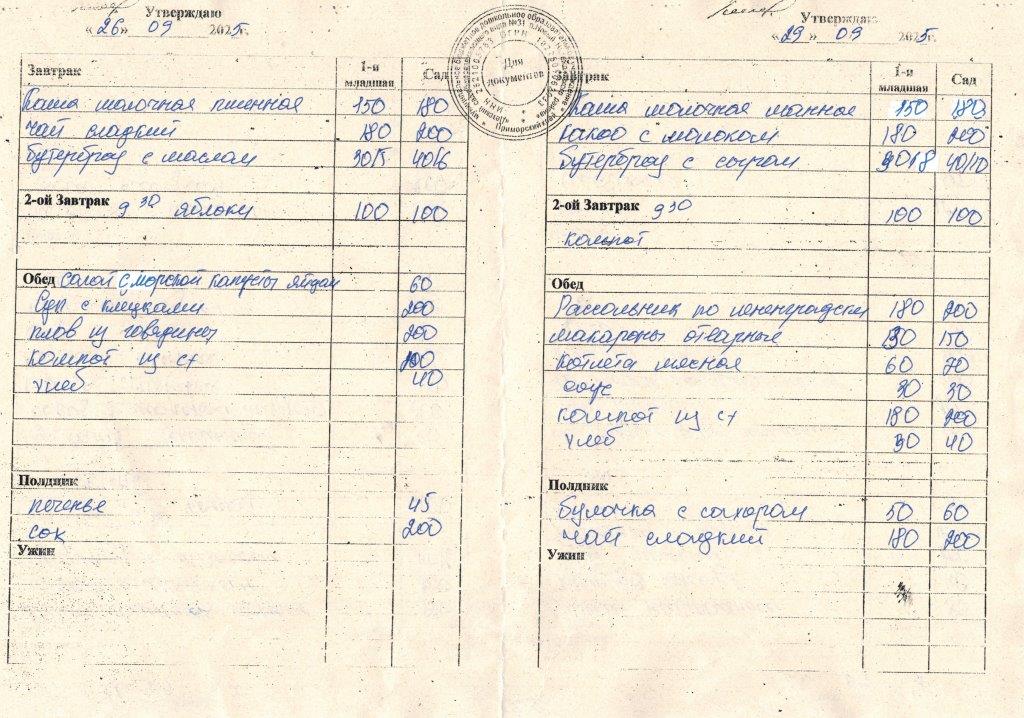 Утверждаю
«26» 09 2025г.
Завтрак 1-я младшая Сад
Каша молочная пшенная 150 180
Чай сладкий 180 200
бутерброд с маслом 30/5 40/6
2-ой Завтрак 9 30 яблоки 100 100
Обед Салат с морской капусты яйцом 60
Суп с клецками 200
плов из говядины 200
компот из сх 200
хлеб 40
Полдник
печенье 45
сок 200
Ужин
Для документов
Утверждаю
«29» 09 2025г.
Завтрак 1-я младшая Сад
Каша молочная манная 150 180
какао с молоком 180 200
бутерброд с сыром 30/8 40/10
2-ой Завтрак 9 30 100 100
компот
Обед
Рассольник по ленинградски 180 200
макароны отварные 130 150
котлета мясная 60 70
соус 30 30
компот из сх 180 200
хлеб 30 40
Полдник
булочка с сахаром 50 60
чай сладкий 180 200
Ужин